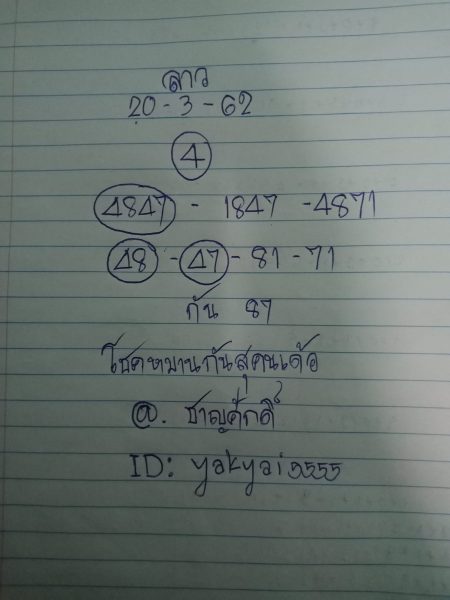 ลาว
20-3-62
4
4847 - 1847 - 4871
48 - 47 - 81 - 71
กัน 87
โชคหมานกันสุคนเด้อ
@. ชาญศักดิ์
ID: yakyai5555